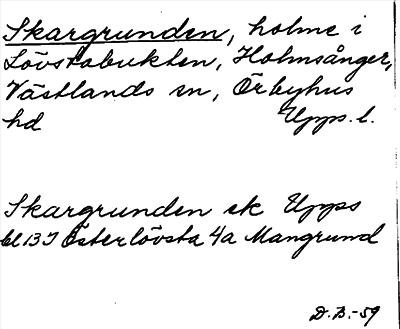 Skargrunden, holme i
Lövstabukten, Holmsånger,
Västlands sn, Örbyhus
hd Upps. l.
Skargrunden ek Upps
bl 13 I Österlövsta 4a Mangrund
D.B.-59